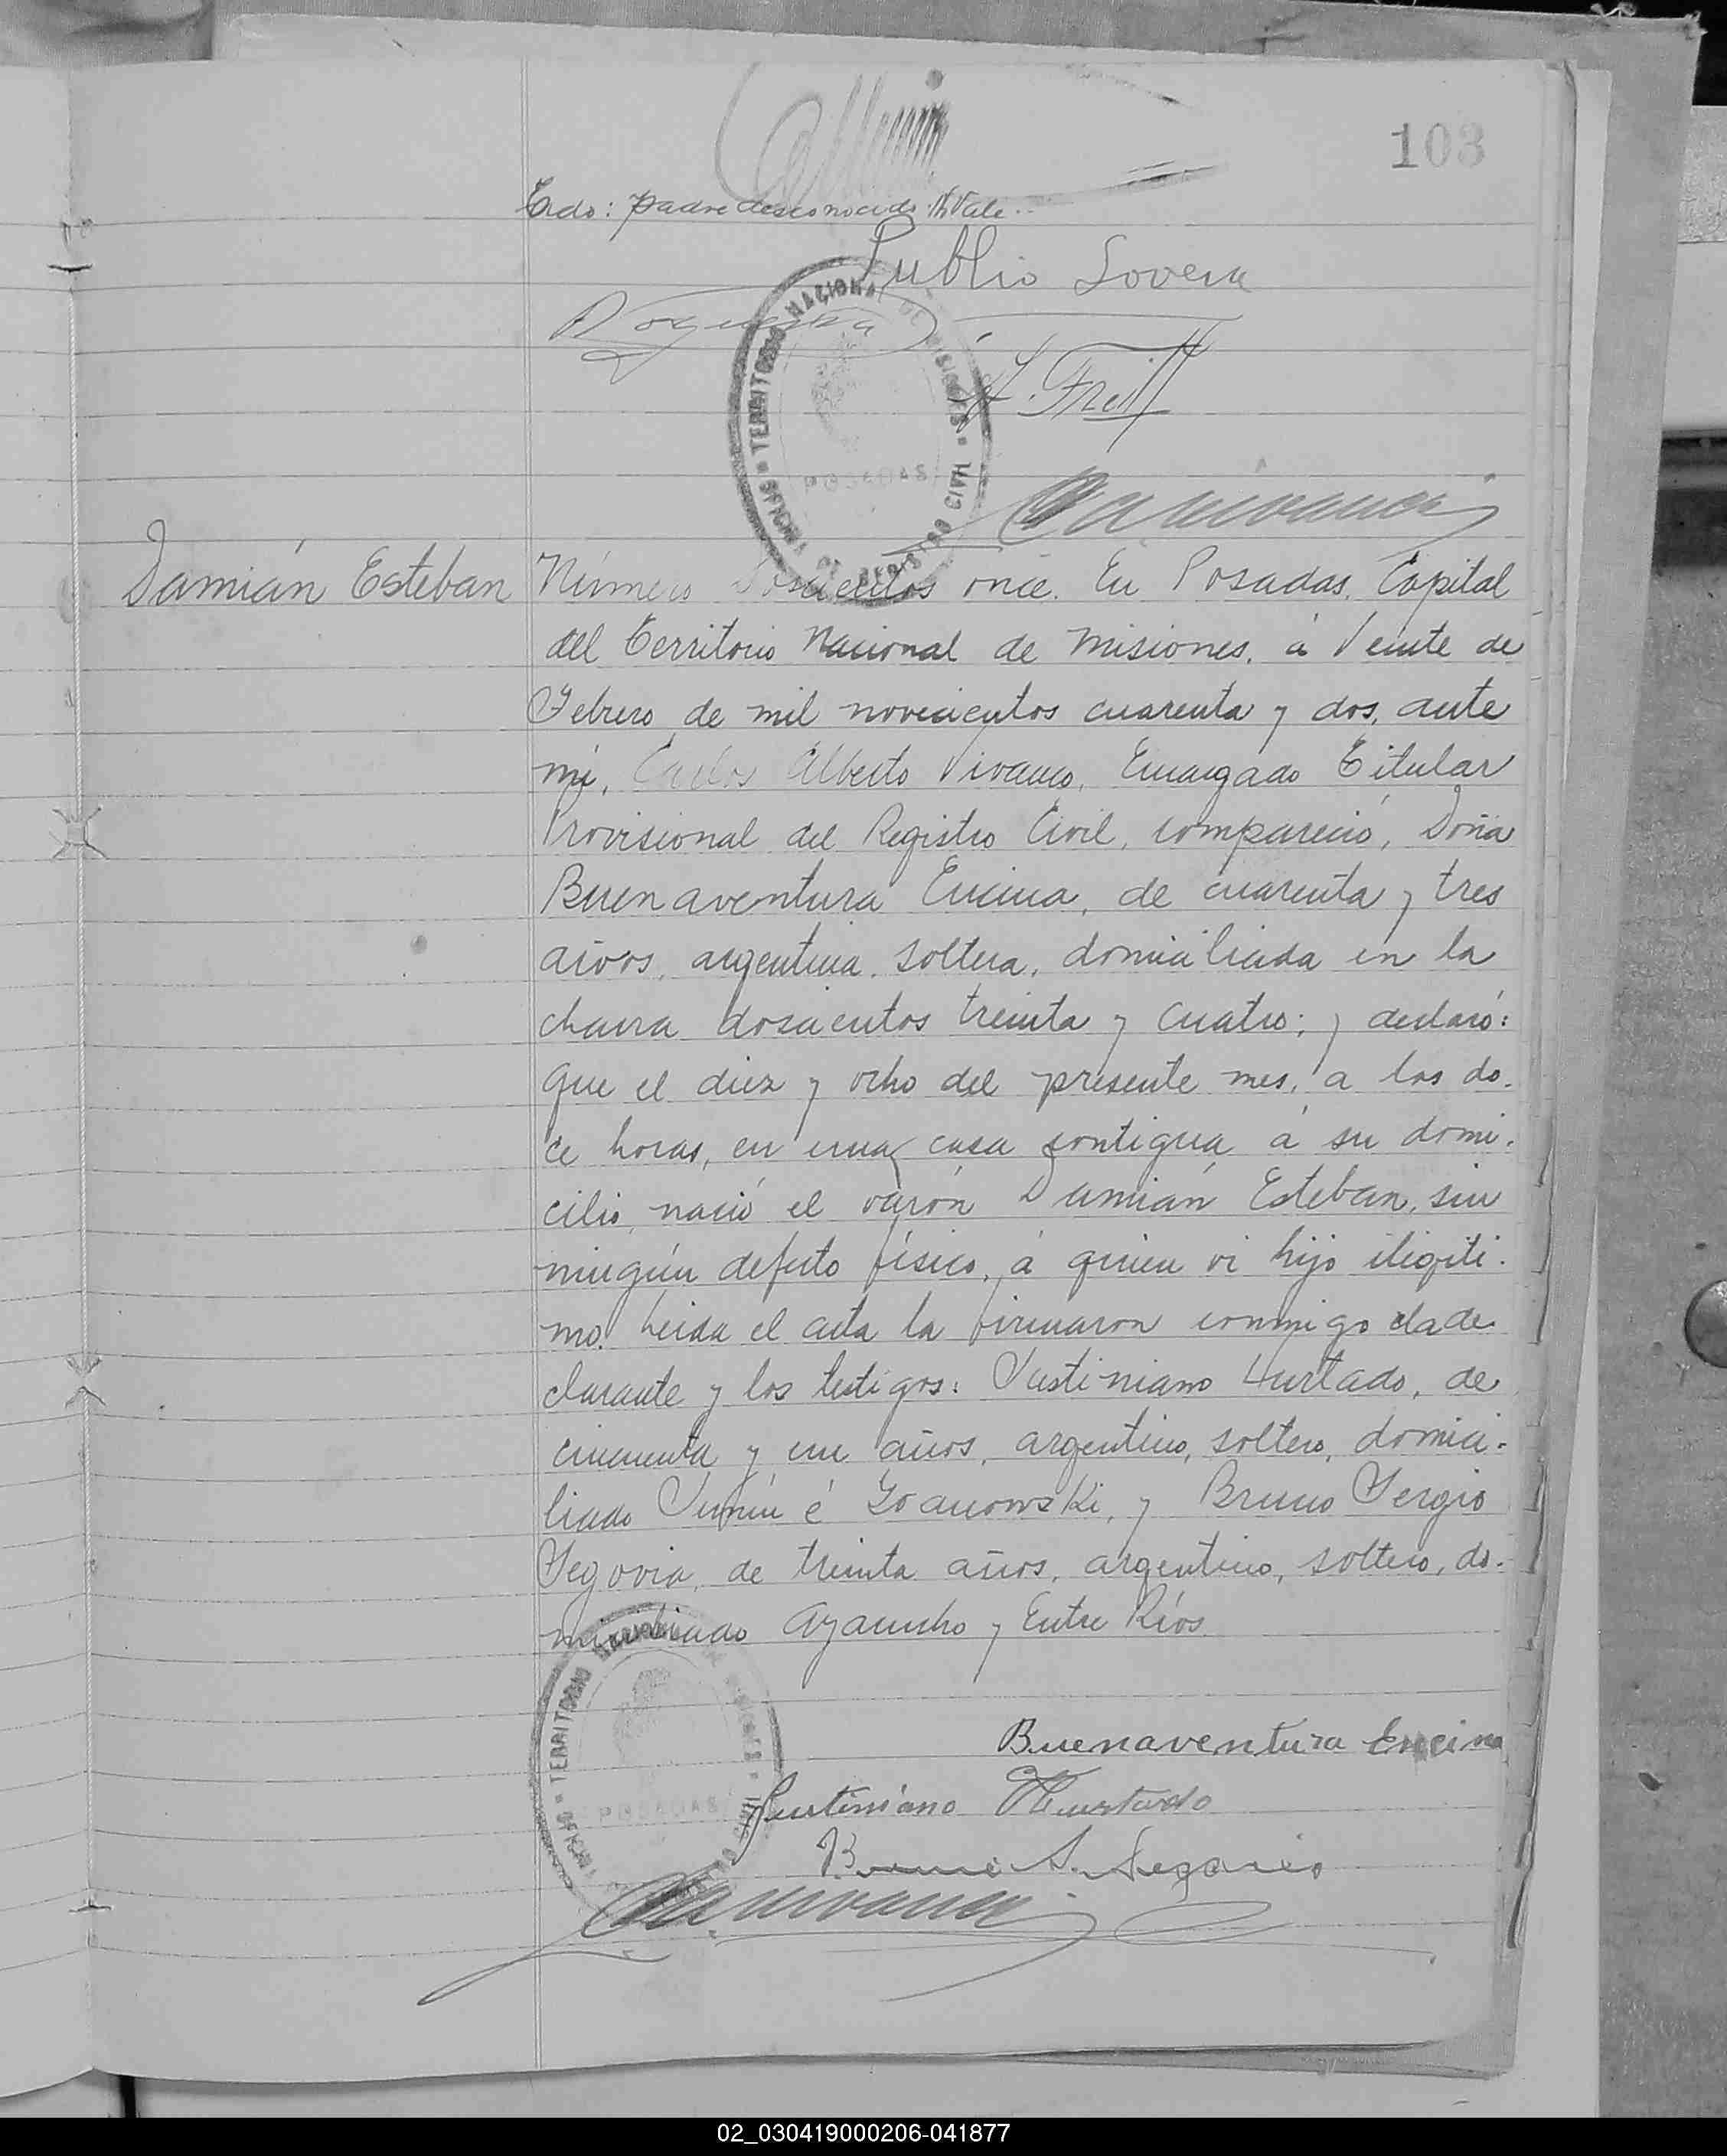 103
Publio Lovera
TERRITORIO NACIONAL DE MISIONES
POSADAS
OFICINA DE REGISTRO CIVIL
Damián Esteban
Número doscientos once. En Posadas, Capital
del Territorio Nacional de Misiones, á Veinte de
Febrero de mil novecientos cuarenta y dos, ante
mí, Carlos Alberto Vivanco, Encargado Titular
Provisional del Registro Civil, compareció, Doña
Buenaventura Encina, de cuarenta y tres
años, argentina, soltera, domiciliada en la
chacra doscientos treinta y cuatro; y declaró:
Que el diez y ocho del presente mes, a las do-
ce horas, en una casa contigua á su domi-
cilio, nació el varón Damián Esteban, sin
ningún defecto físico, á quien vi hijo ilegíti-
mo. Leida el acta la firmaron conmigo la de-
clarante y los testigos: Justiniano Hurtado, de
cincuenta y un años, argentino, soltero, domici-
liado Junín é Yoanowski, y Bruno Sergio
Segovia, de treinta años, argentino, soltero, do-
miciliado Ayacucho y Entre Ríos.
Buenaventura Encina
Justiniano Hurtado
Bruno S. Segovia
TERRITORIO NACIONAL DE MISIONES
POSADAS
02_030419000206-041877